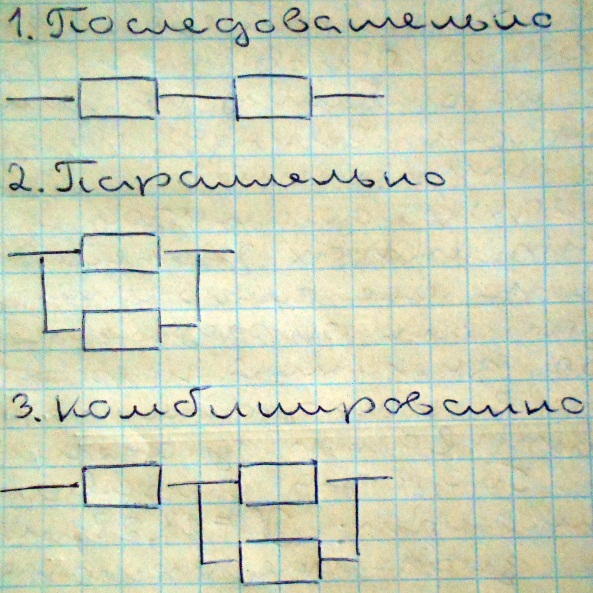 1. Последовательно
2. Параллельно
3. комбинированно